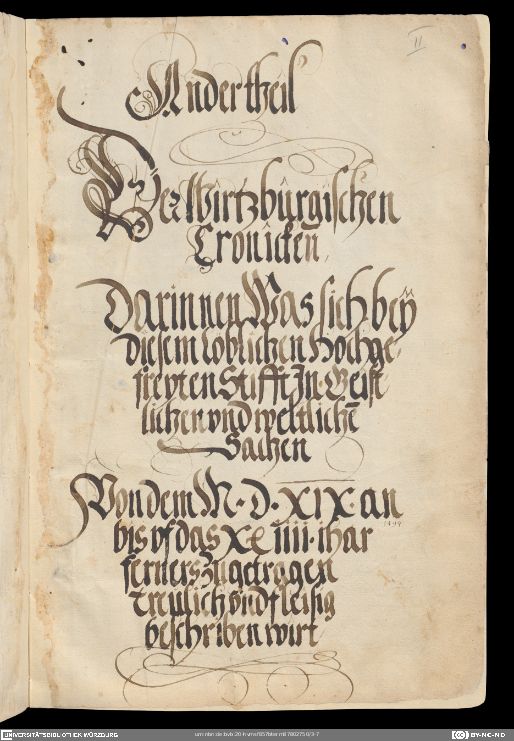 II
Ander theil
Der Wirtzbürgischen
Cronicken,
Darinnen Was sich beÿ
diesem loblichen Hochge,
freyten Stifft In. Geist
lichen vnd weltlichē
Sachen
Von dem M. D. XIX. an
bis vf das XC iiii. ihar
ferners zugetragen
treulich vnd fleisig
beschriben wirt
UNIVERSITÄTSBIBLIOTHEK WÜRZBURG
BY-NC-ND